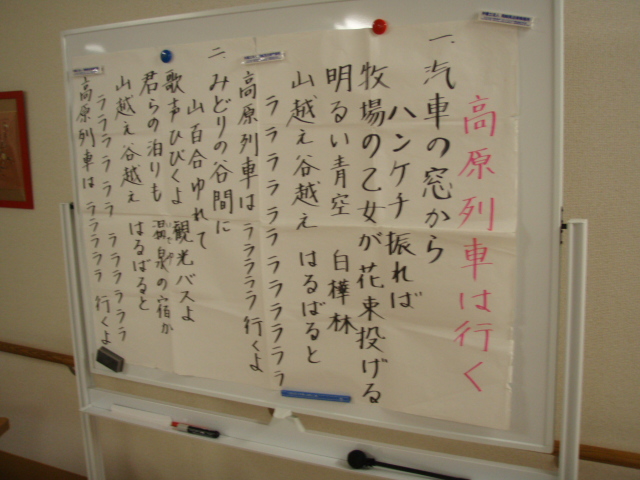 高原列車は行く
一、汽車の窓から
ハンケチ振れば
牧場の乙女が 花束投げる
明るい青空 白樺林
山越え谷越え はるばると
ララララ ララララララ
高原列車は ラララララ 行くよ
二、みどりの谷間に
山百合ゆれて
歌声ひびくよ 観光バスよ
君らの泊りも 温泉の宿か
山越え谷越え はるばると
ララララ ララララララ
高原列車は ラララララ 行くよ